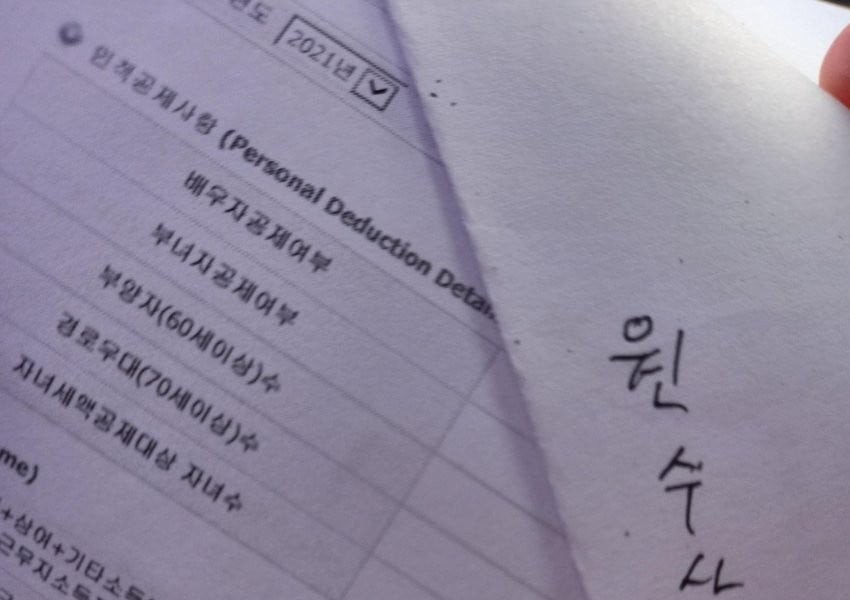 년도 2021년
인적공제사항 (Personal Deduction Detai
배우자공제여부
부녀자공제여부
부양자(60세이상)수
경로우대(70세이상)수
자녀세액공제대상 자녀수
me)
+상여+기타소득
근무지소득
원
수
사